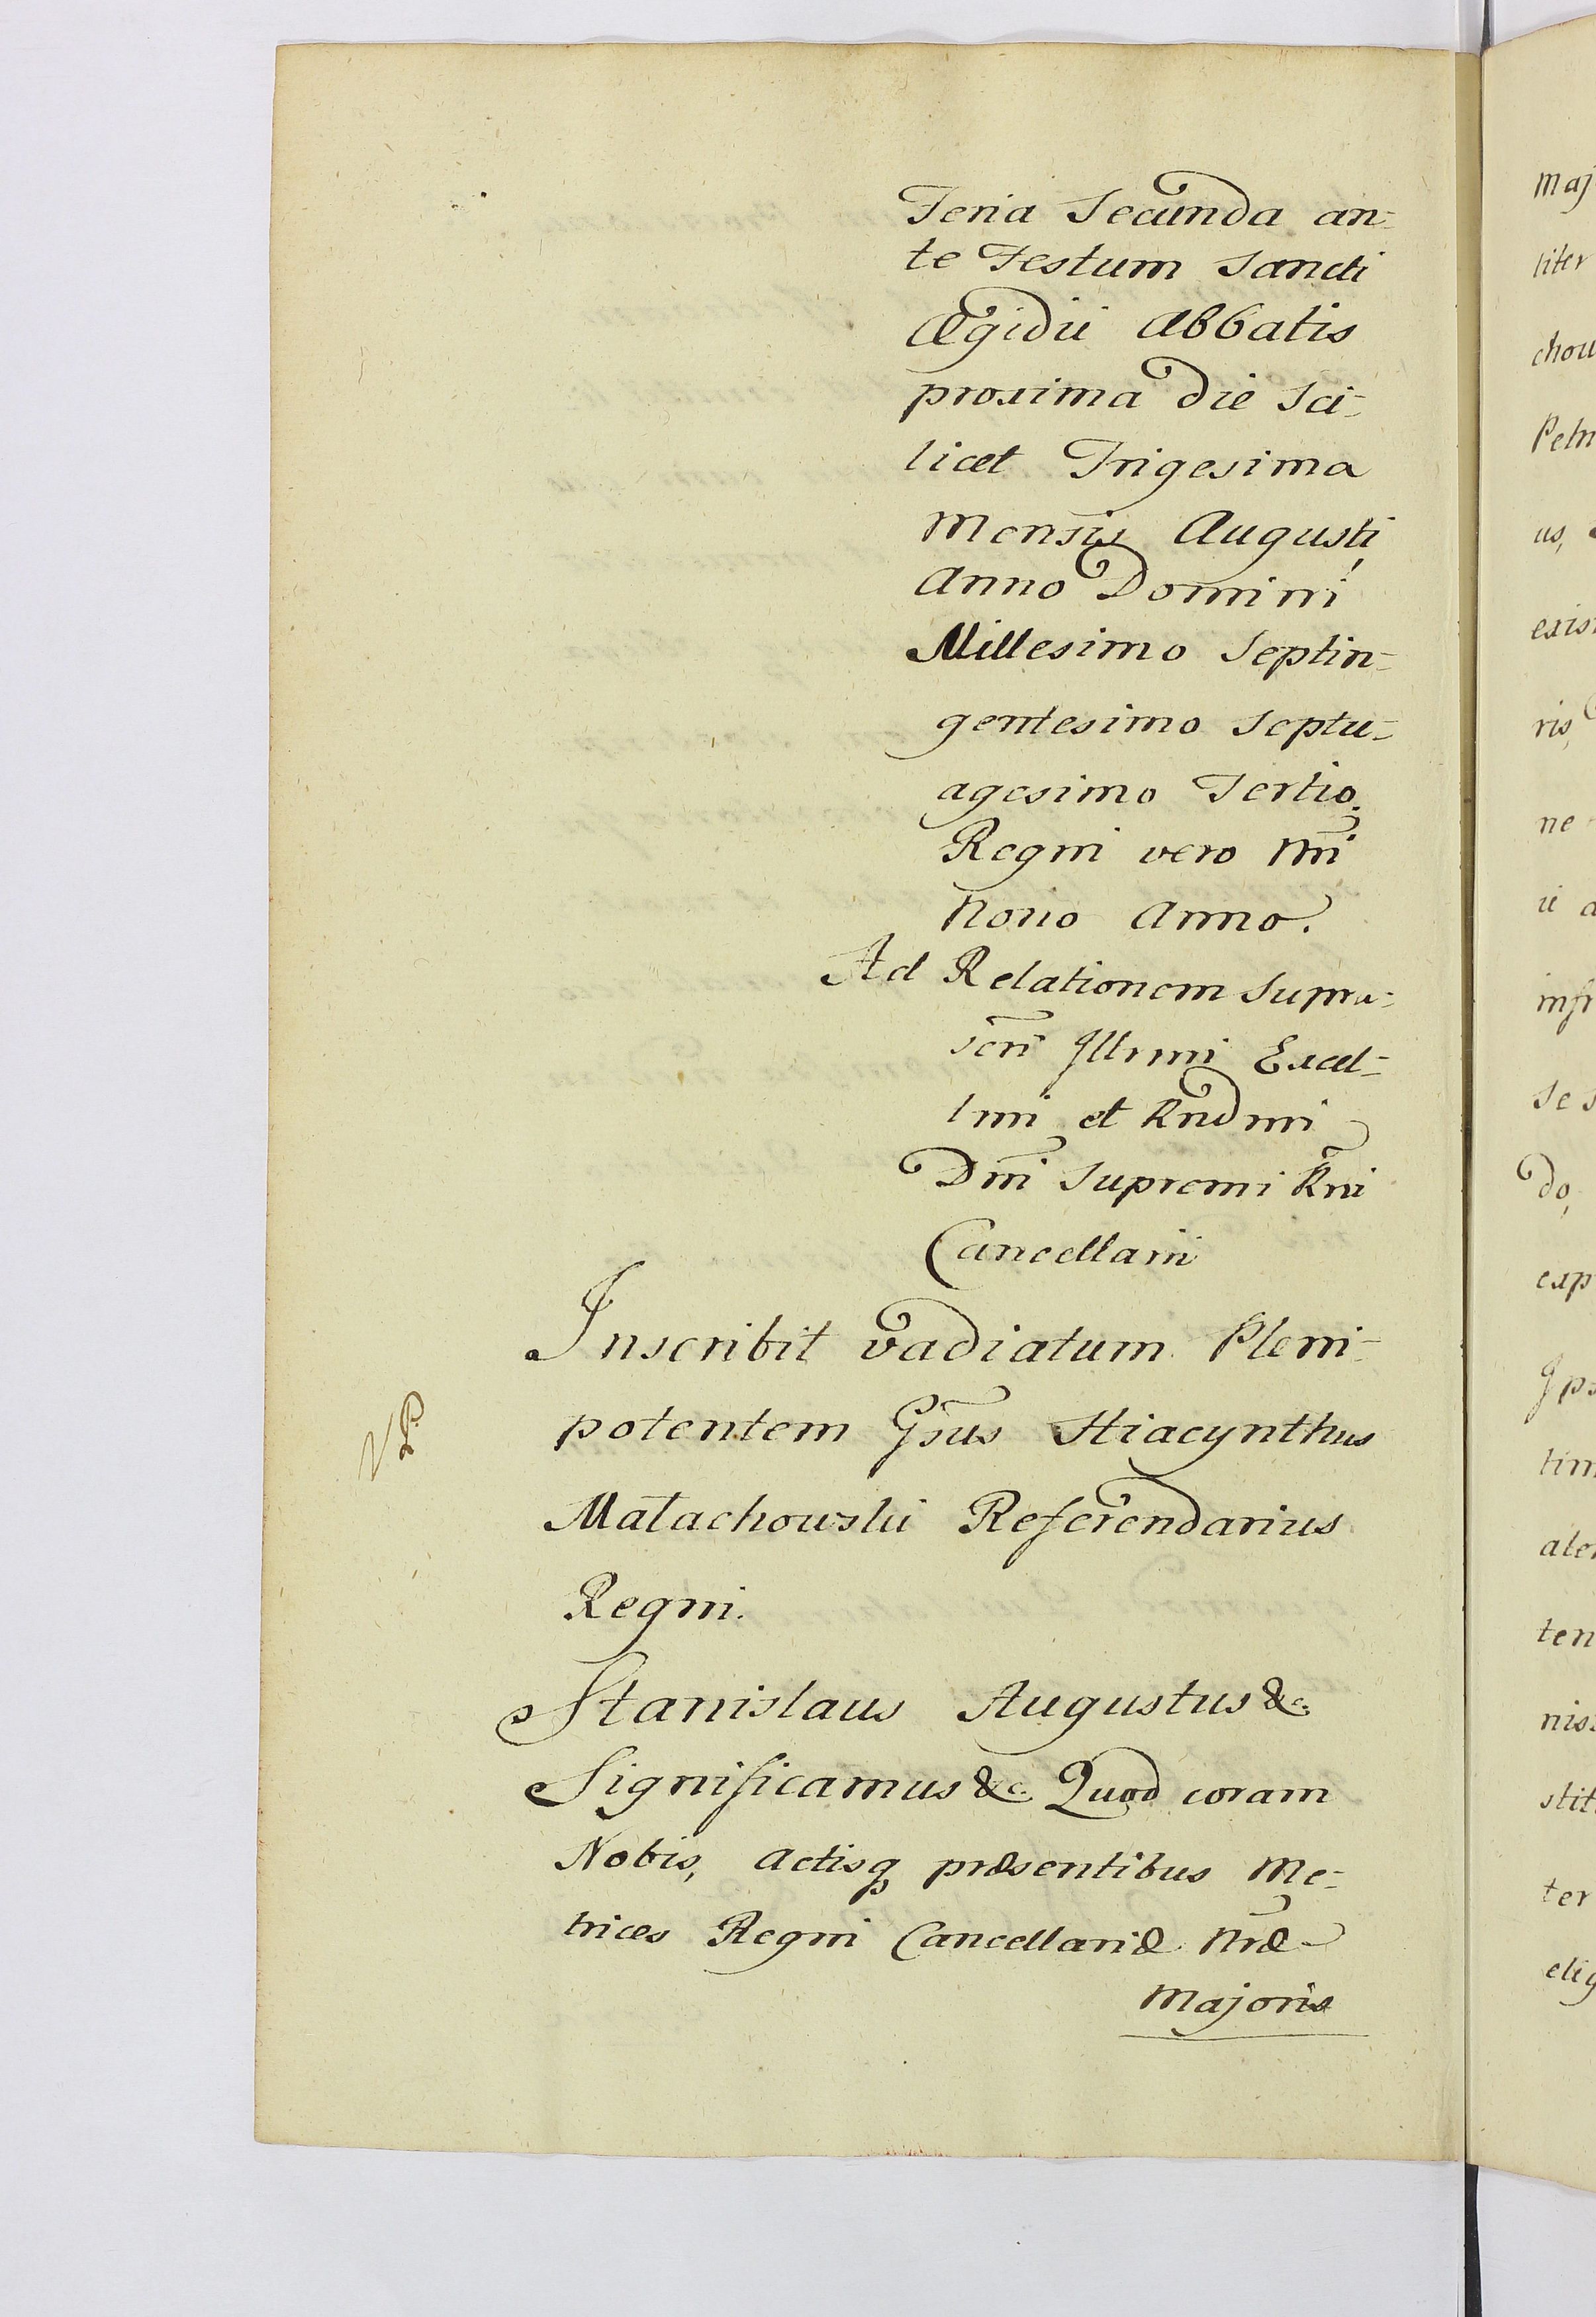 Feria Secunda an-
te Festum Sancti
Ægidii Abbatis
proxima die Sci-
licet Trigesima
Mensis Augusti,
Anno Domini
Millesimo Septin-
gentesimo Septu-
agesimo Tertio.
Regni vero Nri
Nono Anno.
Ad Relationem Supra-
scri Illrmi Excel-
lmi et Rndmi
Dni Supremi Rni
Cancellarii
Inscribit vadiatum Pleni-
potentem Gsus Hiacynthus
Małachowski Referendarius
Regni.
Stanislaus Augustus &c.
Significamus &c. Quod coram
Nobis, Actisq præsentibus Me-
trices Regni Cancellariæ Nræ
Majoris
Maj
liter
chow
Petri
us,
exis
ris,
ne
ii a
infr
se s
do,
exp
Ips
tim
ten
nis
stit
ter
elig